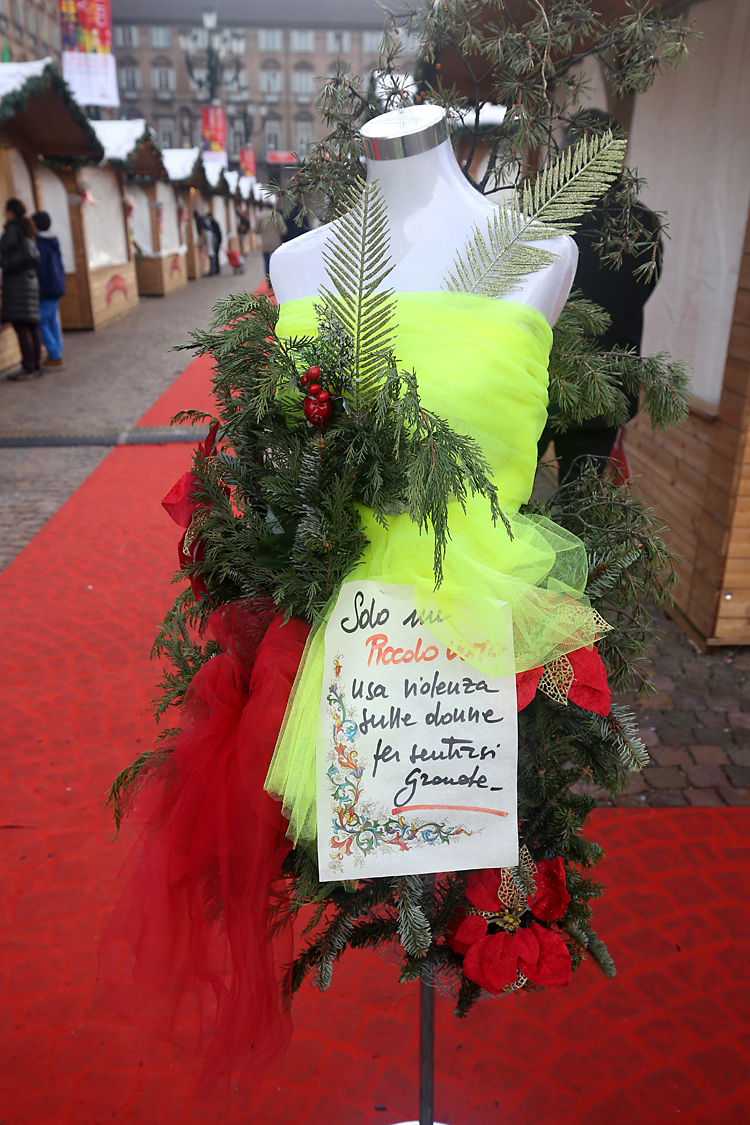 Solo un
Piccolo uomo
usa violenza
sulle donne
per sentirsi
Grande_